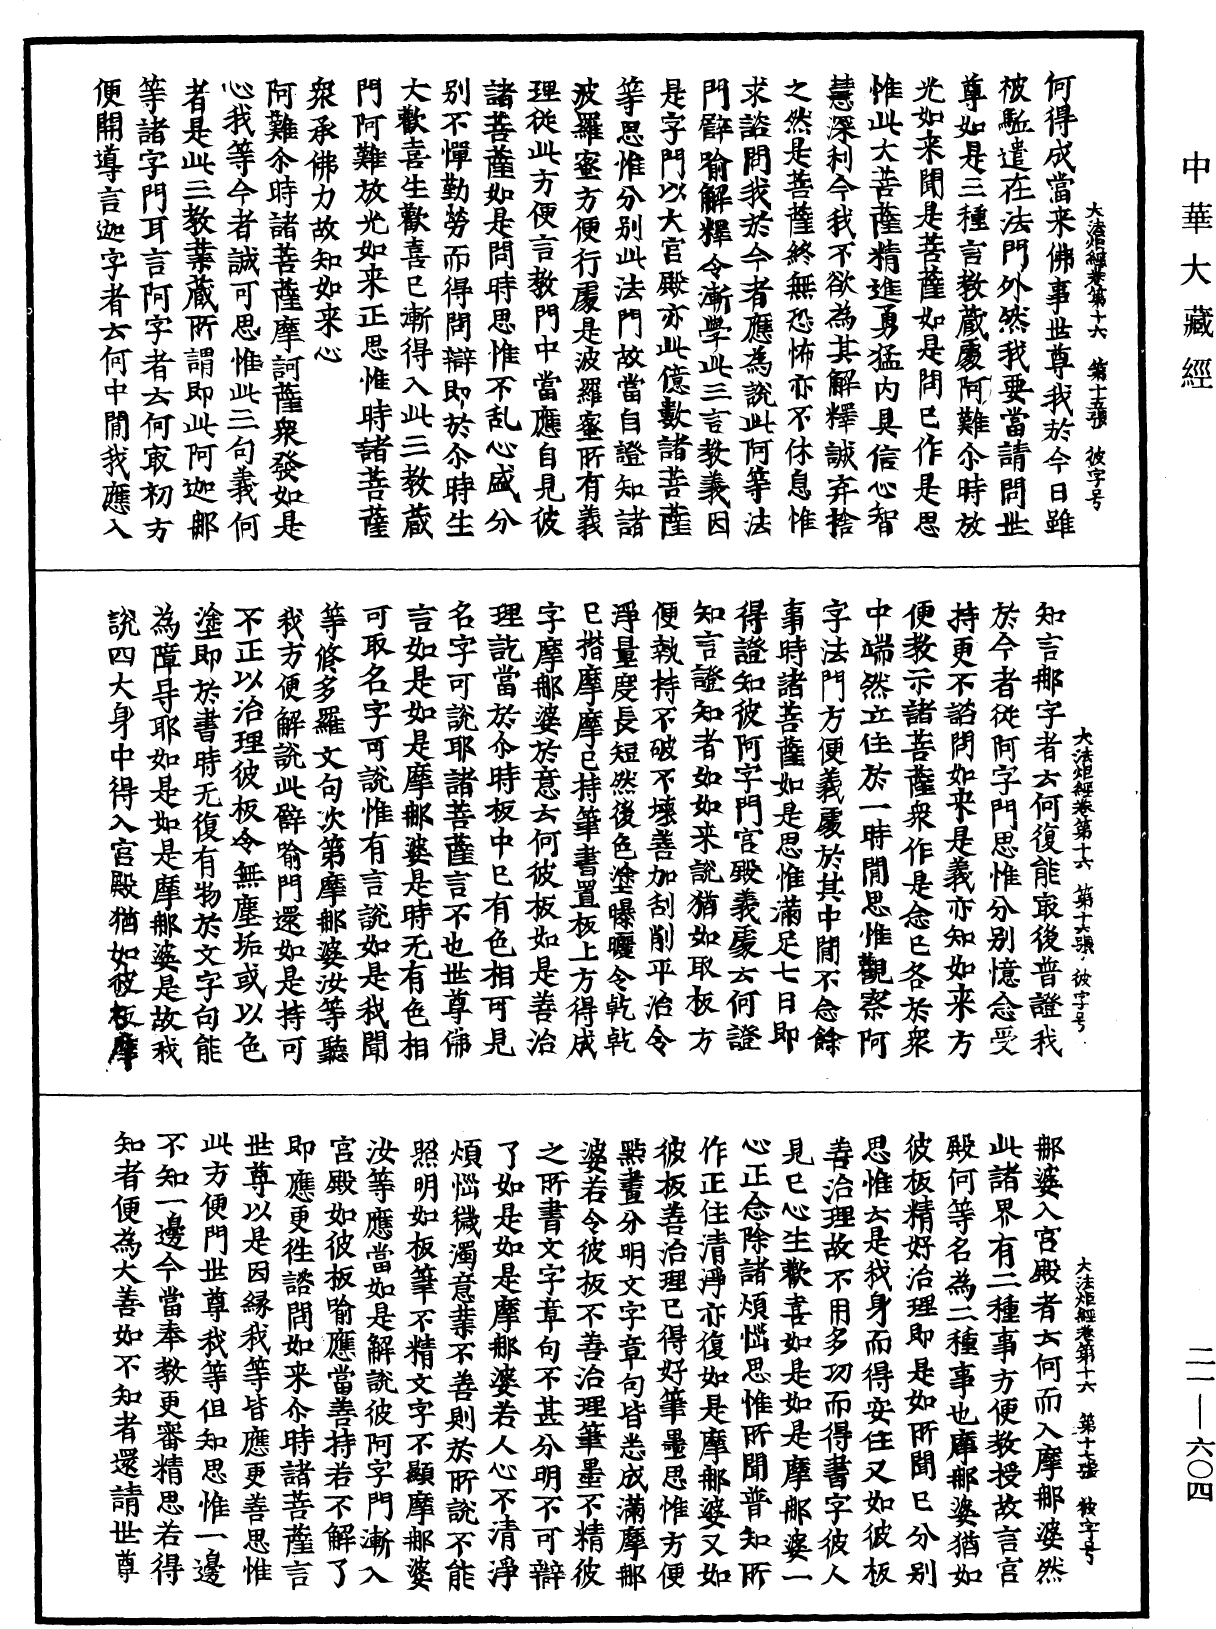 中華大藏經
大法炬經卷第十六　第十五張　彼字号
何得成當来佛事世尊我於今日雖
被駈遣在法門外然我要當請問世
尊如是三種言教藏處阿難尒時放
光如来聞是菩薩如是問已作是思
惟此大菩薩精進勇猛内具信心智
慧深利今我不欲為其解釋誠弃捨
之然是菩薩終無恐怖亦不休息惟
求諮問我於今者應為說此阿等法
門譬喻解釋令漸學此三言教義因
是字門以大官殿亦此億數諸菩薩
等思惟分別此法門故當自證知諸
波羅蜜方便行處是波羅蜜所有義
理従此方便言教門中當應自見彼
諸菩薩如是問時思惟不乱心盛分
別不憚勤勞而得問辯即於尒時生
大歡喜生歡喜已漸得入此三教藏
門阿難放光如来正思惟時諸菩薩
衆承佛力故知如来心
阿難尒時諸菩薩摩訶薩衆發如是
心我等今者誠可思惟此三句義何
者是此三教業藏所謂即此阿迦郍
等諸字門耳言阿字者云何㝡初方
便開導言迦字者云何中間我應入
大法炬經卷第十六　第十六張　彼字号
知言郍字者云何復能㝡後普證我
於今者従阿字門思惟分別憶念受
持更不諮問如来是義亦知如来方
便教示諸菩薩衆作是念已各於衆
中端然立住於一時間思惟觀察阿
字法門方便義處於其中間不念餘
事時諸菩薩如是思惟滿足七日即
得證知彼阿字門宫殿義處云何證
知言證知者如如来說猶如取板方
便執持不破不壞善加刮削平治令
淨量度長短然後色塗曝曬令乾乾
已揩摩摩已持筆書置板上方得成
字摩郍婆於意云何彼板如是善治
理訖當於尒時板中已有色相可見
名字可說耶諸菩薩言不也世尊佛
言如是如是摩郍婆是時无有色相
可取名字可說惟有言說如是我聞
等修多羅文句次第摩郍婆汝等聽
我方便解說此譬喻門還如是持可
不正以治理彼板令無塵垢或以色
塗即於書時无復有物於文字句能
為障导耶如是如是摩郍婆是故我
說四大身中得入宫殿猶如彼板摩
大法炬經卷第十六　第十七張　彼字号
郍婆入宫殿者云何而入摩郍婆然
此諸界有二種事方便教授故言宫
殿何等名為二種事也摩郍婆猶如
彼板精好治理即是如所聞已分別
思惟云是我身而得安住又如彼板
善治理故不用多功而得書字彼人
見已心生歡喜如是如是摩郍婆一
心正念除諸煩惱思惟所聞普知所
作正住清淨亦復如是摩郍婆又如
彼板善治理已得好筆墨思惟方便
點畫分明文字章句皆悉成滿摩郍
婆若令彼板不善治理筆墨不精彼
之所書文字章句不甚分明不可辯
了如是如是摩郍婆若人心不清淨
煩惱穢濁意業不善則於所說不能
照明如板筆不精文字不顯摩郍婆
汝等應當如是解說彼阿字門漸入
宫殿如彼板喻應當善持若不解了
即應更往諮問如来尒時諸菩薩言
世尊以是因緣我等皆應更善思惟
此方便門世尊我等但知思惟一邊
不知一邊今當奉教更審精思若得
知者便為大善如不知者還請世尊
二一—六〇四